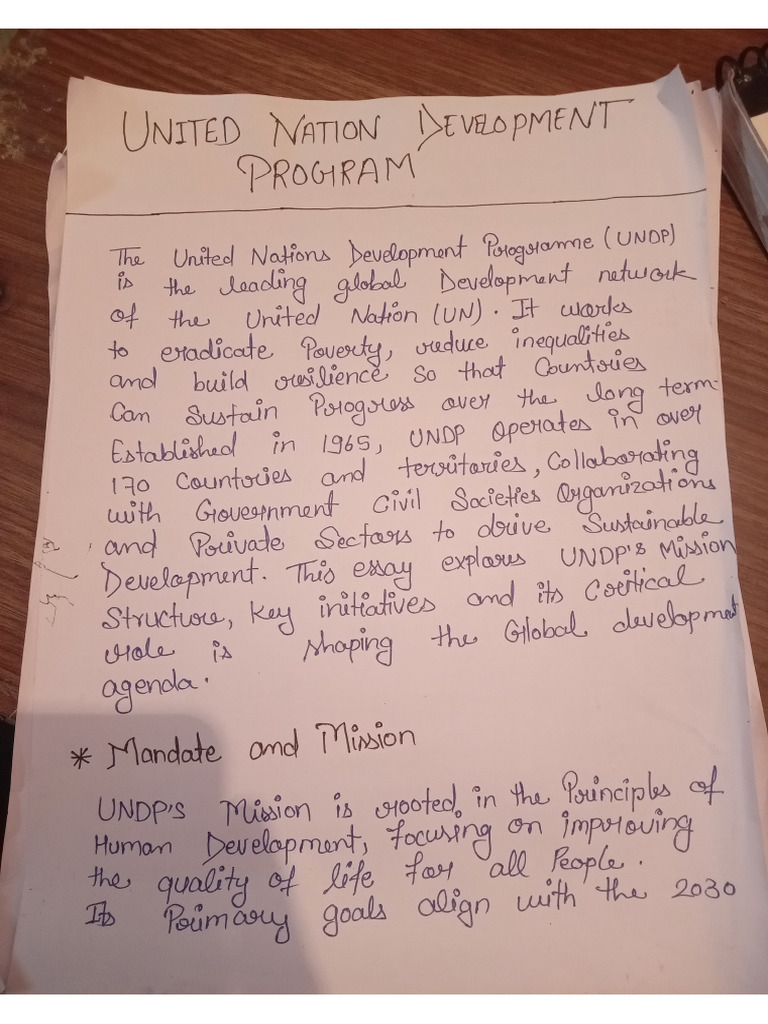 UNITED NATION DEVELOPMENT
PROGRAM
The United Nations Development Programme (UNDP)
is the leading global Development network
of the United Nation (UN). It works
to eradicate Poverty, reduce inequalities
and build resilience So that Countries
Can Sustain Progress over the long term.
Established in 1965, UNDP Operates in over
170 Countries and territories, Collaborating
with Government Civil Societies Organizations
and Private Sectors to drive Sustainable
Development. This essay explores UNDP's Mission
Structure, Key initiatives and its Critical
role is shaping the Global development
agenda.
* Mandate and Mission
UNDP'S Mission is rooted in the Principles of
Human Development, focusing on improving
the quality of life for all People.
Its Primary goals align with the 2030